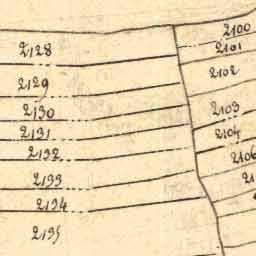 2128
2129
2130
2131
2132
2133
2134
2135
2100
2101
2102
2103
2104
2106